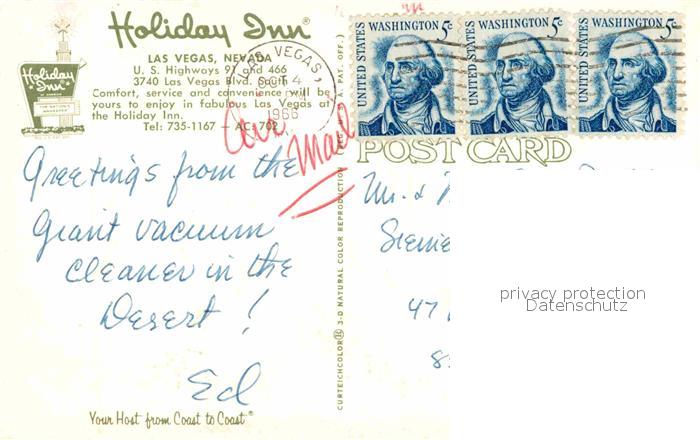 Holiday Inn®
LAS VEGAS, NEVADA
U. S. Highways 91 and 466
3740 Las Vegas Blvd. South
Comfort, service and convenience will be
yours to enjoy in fabulous Las Vegas at
the Holiday Inn.
Tel: 735-1167 – AC: 702
Holiday
Inn
VEGAS,
1966
Air
Mail
UNITED STATES WASHINGTON 5c
UNITED STATES WASHINGTON 5c
UNITED STATES WASHINGTON 5c
POST CARD
Greetings from the
Giant vacuum
cleaner in the
Desert!
Ed
Your Host from Coast to Coast®
CURTEICHCOLOR® 3-D NATURAL COLOR REPRODUCTION
A. PAT. OFF.)
Mr. &
47
8
privacy protection
Datenschutz